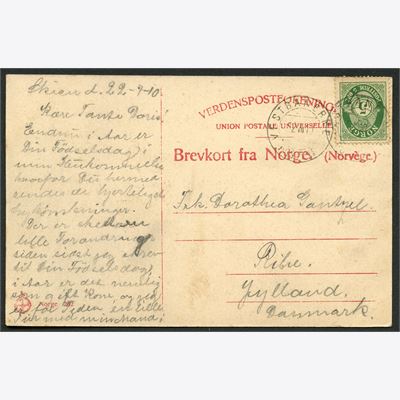 Skien d. 22-9-10
Kære Tante Doris
Endnu i Aar er
Din Fødselsdag i
min
hvorfor Du hermed
sendes de hjerteligste
Lykønskninger.
Der er
lille Forandring
siden sidst jeg skrev
til Din Fødselsdag,
i Aar er det nemlig
som gift Kone, og jeg
er for Tiden en lille
Tur med min Mand i
Norge
VERDENSPOSTFORENINGEN
UNION POSTALE UNIVERSELLE
Brevkort fra Norge. (Norvège.)
Frk. Dorothea Gantzel.
Ribe.
Jylland.
Danmark.
VESTBANERNE
NORGE
5